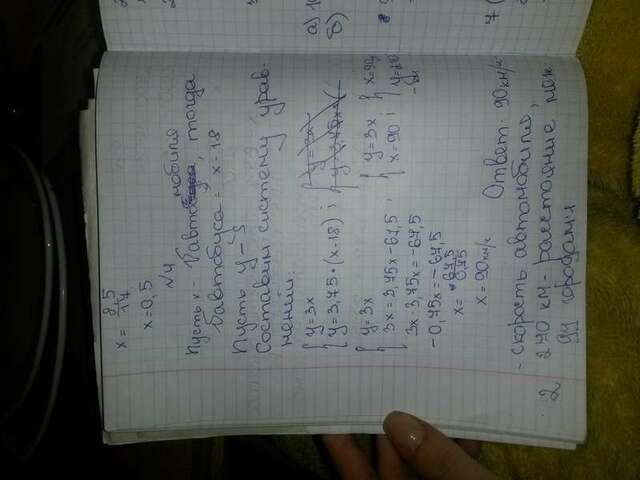 x = 8,5/17
x = 0,5
N4
Пусть x - Vавтомобиля, тогда
Vавтобуса = x - 18
Пусть y - S
Составим систему урав-
нений:
{ y = 3x
{ y = 3,75 * (x-18) ;
{ y = 3x
{ 3x = 3,75x - 67,5 ;
{ y = 3x
{ x = 90 ;
{ x = 90
3x - 3,75x = -67,5
-0,75x = -67,5
x = 67,5/0,75
x = 90 км/ч
Ответ: 90 км/ч
- скорость автомобиля,
270 км - расстояние меж
ду городами